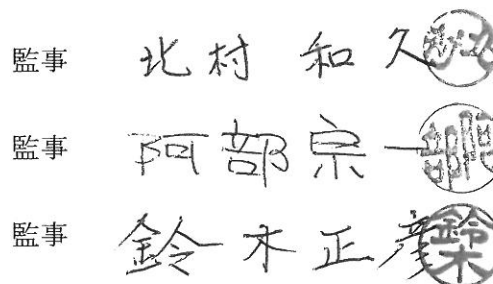 監事 北村 和久
監事 阿部宗一
監事 鈴木正彦